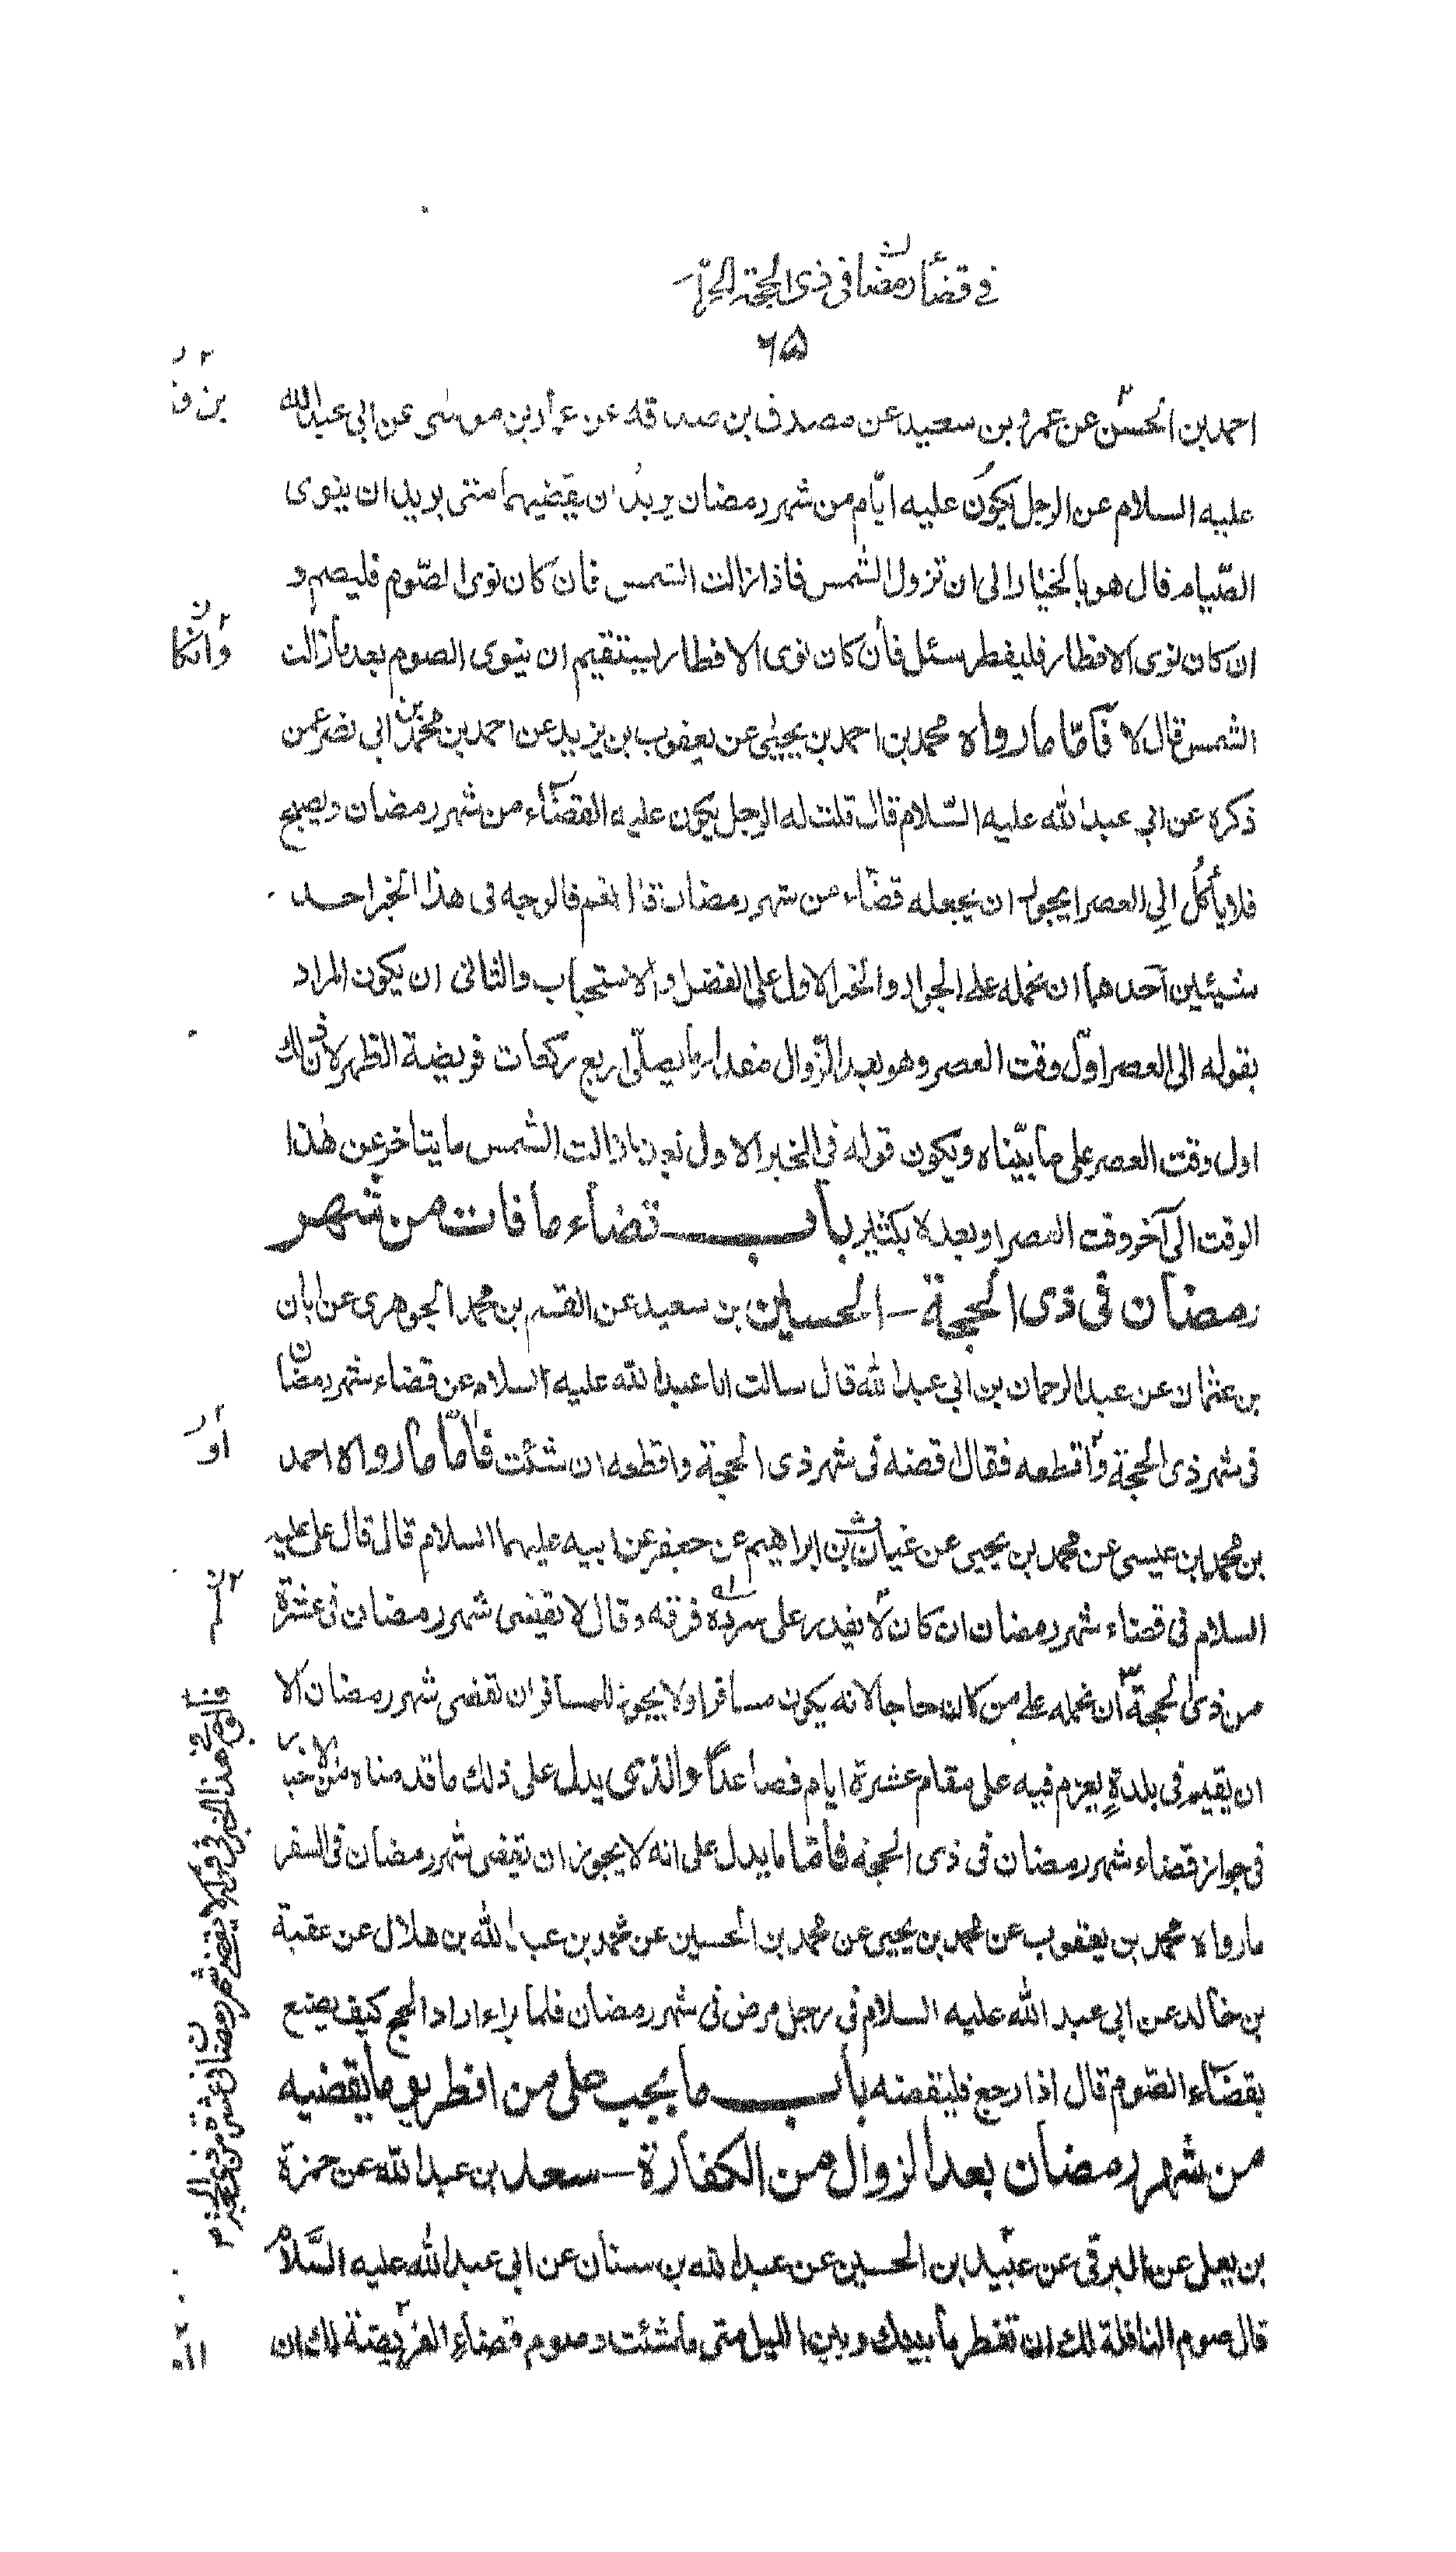 في قضاء رمضان في ذى الحجة الخ
٦٥
احمد بن الحسن عن عمرو بن سعيد عن مصدق بن صدقه عن عمار بن موسى عن ابى عبدالله
عليه السلام عن الرجل يكون عليه ايّام من شهر رمضان يريد ان يقضيها متى يريد ان ينوى
الصّيام قال هو بالخيار الى ان تزول الشمس فاذا زالت الشمس فان كان نوى الصّوم فليصم و
ان كان نوى الافطار فليفطر سئل فأن كان نوى الافطار ايستقيم ان ينوى الصوم بعد ما زالت
الشمس قال لا فأمّا ما رواه محمد بن احمد بن يحيى عن يعقوب بن يزيد عن احمد بن محمد بن ابى نصر عمن
ذكره عن ابى عبد الله عليه السّلام قال قلت له الرجل يكون عليه القضاء من شهر رمضان ويصبح
فلا يأكل الى العصر ايجوز ان يجعله قضاء من شهر رمضان قال نعم فالوجه فى هذا الخبر احد
شيئين احدهما ان نحمله على الجواز والخبر الاول على الفضل والاستحباب والثانى ان يكون المراد
بقوله الى العصر اوّل وقت العصر وهو بعد الزّوال مقدار ما يصلّى اربع ركعات فريضة الظهر لان ذلك
اول وقت العصر على ما بيّناه ويكون قوله فى الخبر الاول بعد ما زالت الشمس ما يتاخر عن هذا
الوقت الى آخر وقت العصر او بعده لا بكثير باب قضاء ما فات من شهر
رمضان فى ذى الحجة - الحسين بن سعيد عن القسم بن محمد الجوهرى عن ابان
بن عثمان عن عبد الرحمان بن ابى عبد الله قال سالت ابا عبد الله عليه السلام عن قضاء شهر رمضان
فى شهر ذى الحجة واقطعه فقال اقضه فى شهر ذى الحجة واقطعه ان شئت فأمّا ما رواه احمد
بن محمد ابن عيسى عن محمد بن يحيى عن غياث بن ابراهيم عن جعفر عن ابيه عليهما السلام قال قال على عليه
السلام فى قضاء شهر رمضان ان كان لا يقدر على سرده فرقه وقال لا يقضى شهر رمضان فى عشرة
من ذى الحجة ان نحمله على من كان حاجا لانه يكون مسافرا ولا يجوز للمسافر ان تقضى شهر رمضان الا
ان يقيم فى بلدة يعزم فيه على مقام عشرة ايام فصاعداً والذى يدل على ذلك ما قدمناه من الاخبار
فى جواز قضاء شهر رمضان فى ذى الحجة فأمّا ما يدل على انه لا يجوز ان تقضى شهر رمضان فى السفر
ما رواه محمد بن يعقوب عن محمد بن يحيى عن محمد بن الحسين عن محمد بن عبد الله بن هلال عن عقبة
بن خالد عن ابى عبد الله عليه السلام فى رجل مرض فى شهر رمضان فلما براء اراد الحج كيف يصنع
بقضاء الصّوم قال اذا رجع فليقضه باب ما يجب على من افطر يوما يقضيه
من شهر رمضان بعد الزوال من الكفارة - سعد بن عبد الله عن حمزة
بن يعلى عن البرقى عن عبيد بن الحسين عن عبد الله بن سنان عن ابى عبد الله عليه السَّلام
قال صوم النافلة لك ان تفطر ما بينك وبين الليل متى ما شئت وصوم قضاء الفريضة لك ان
فالوجه فى هذا الخبر فى قوله لا يقضى شهر رمضان فى عشرة من ذى الحجة م